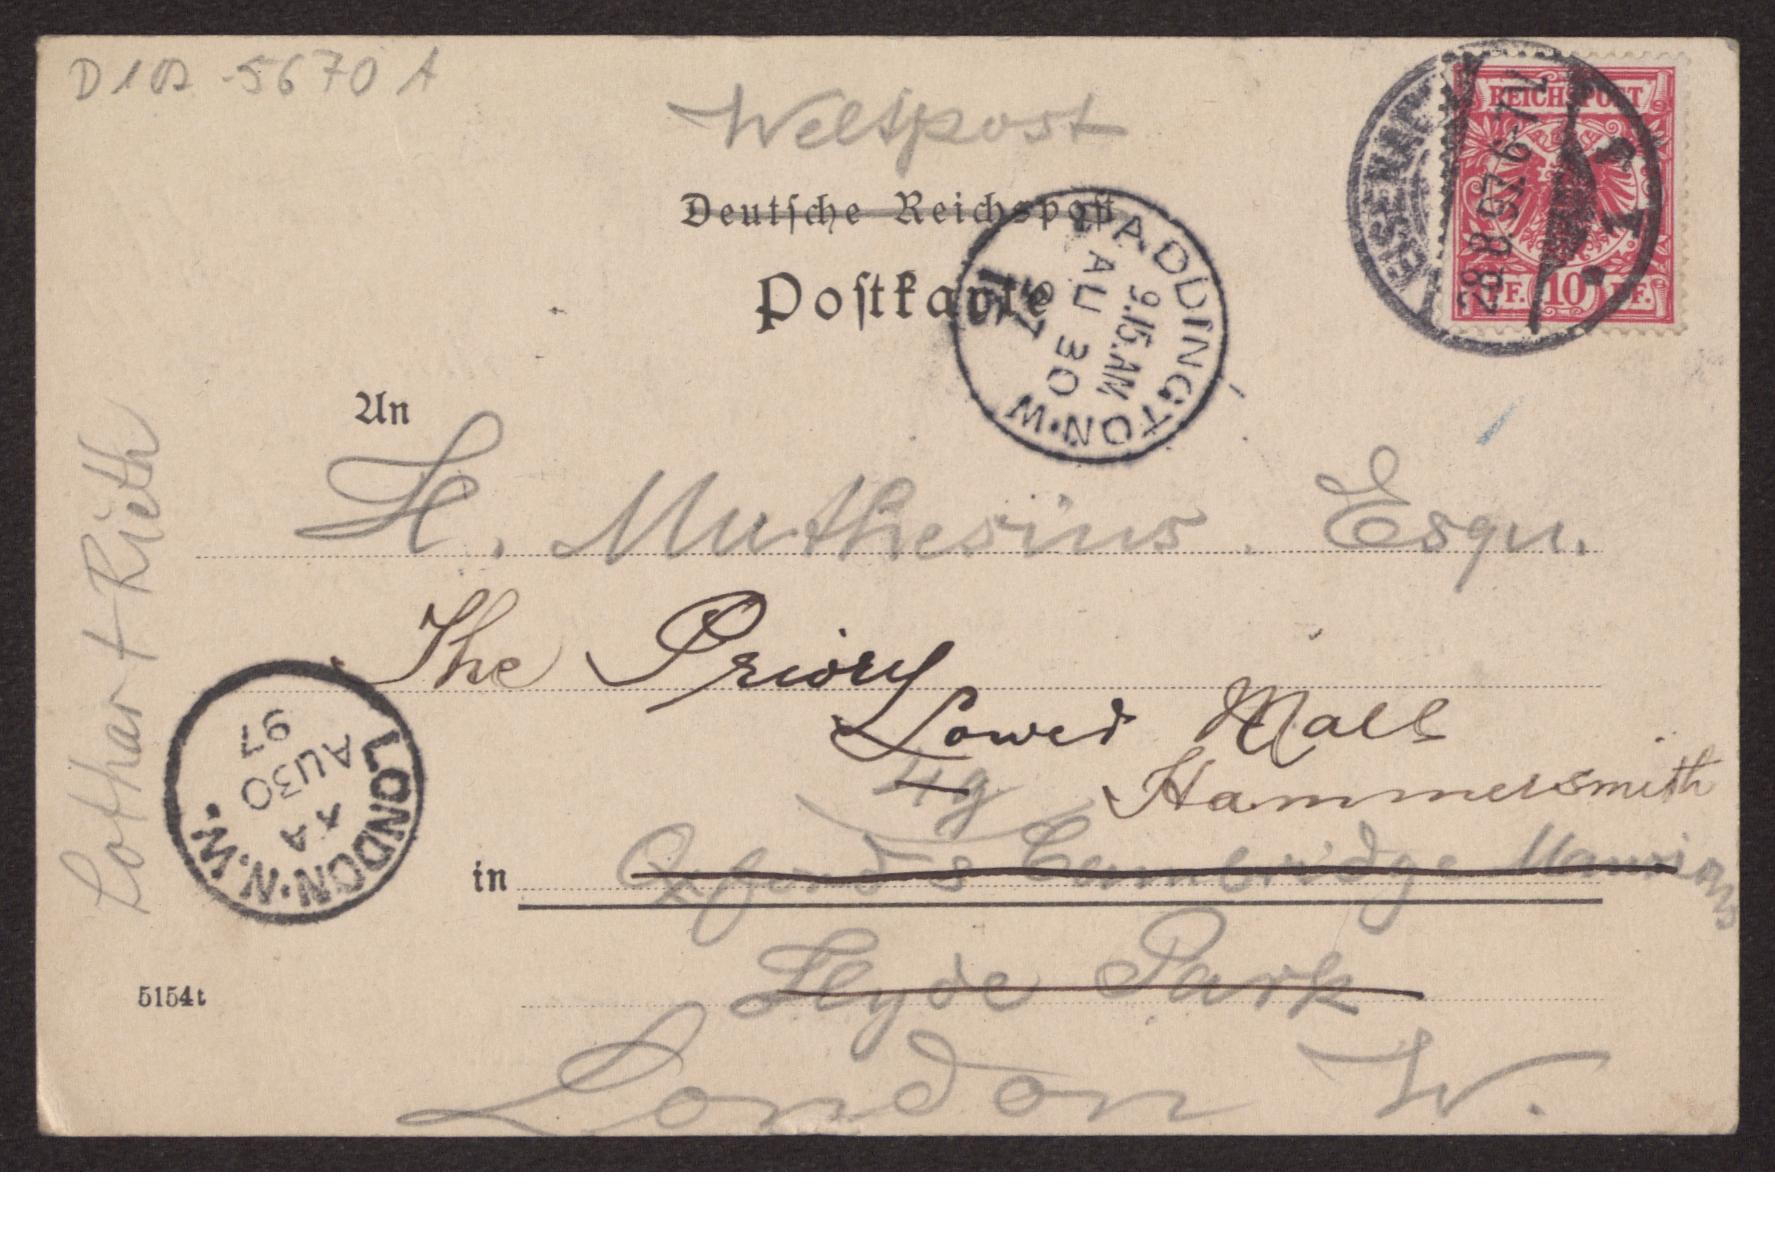 D 102 -5670 A
Weltpost
Deutsche Reichspost
Postkarte
REICHSPOST
PF. 10 PF.
28.8.97 6-7N.
PADDINGTON·W
9.15.AM
AU 30
97
An
H. Muthesius. Esqu.
The Priory
Lower Mall
Hammersmith
49
in Oxford & Cambridge Mansions
Hyde Park
London W.
LONDON·N.W.
AU30
97
Lothar + Rieth
5154t